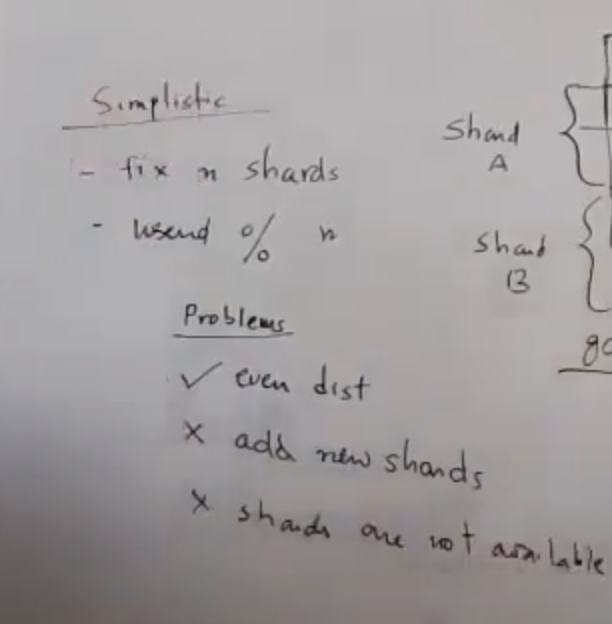 Simplistic
- fix n shards
- userid % n
Problems
✓ even dist
x add new shards
x shards are not available
Shard
A
Shard
B